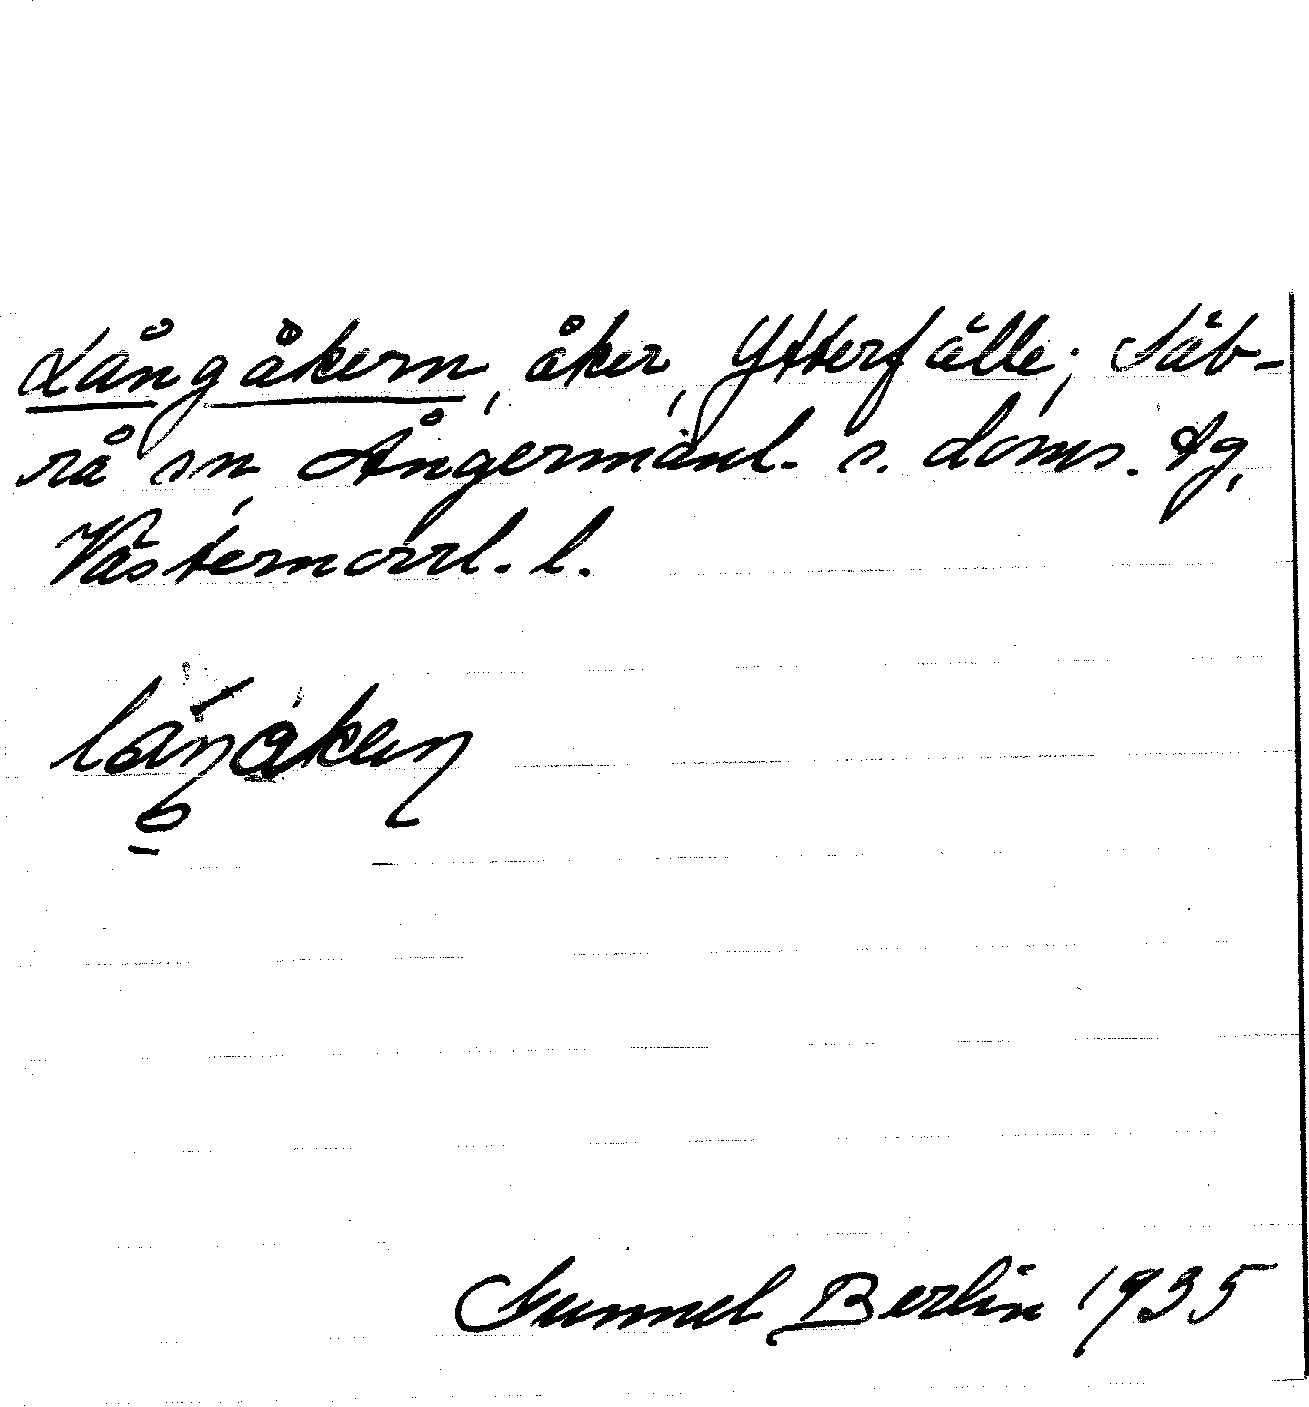 Långåkern, åker, Ytterfälle, Säb-
rå sn, Ångermanl. s. doms. tg,
Västernorrl. l.
Gunnel Berlin 1935